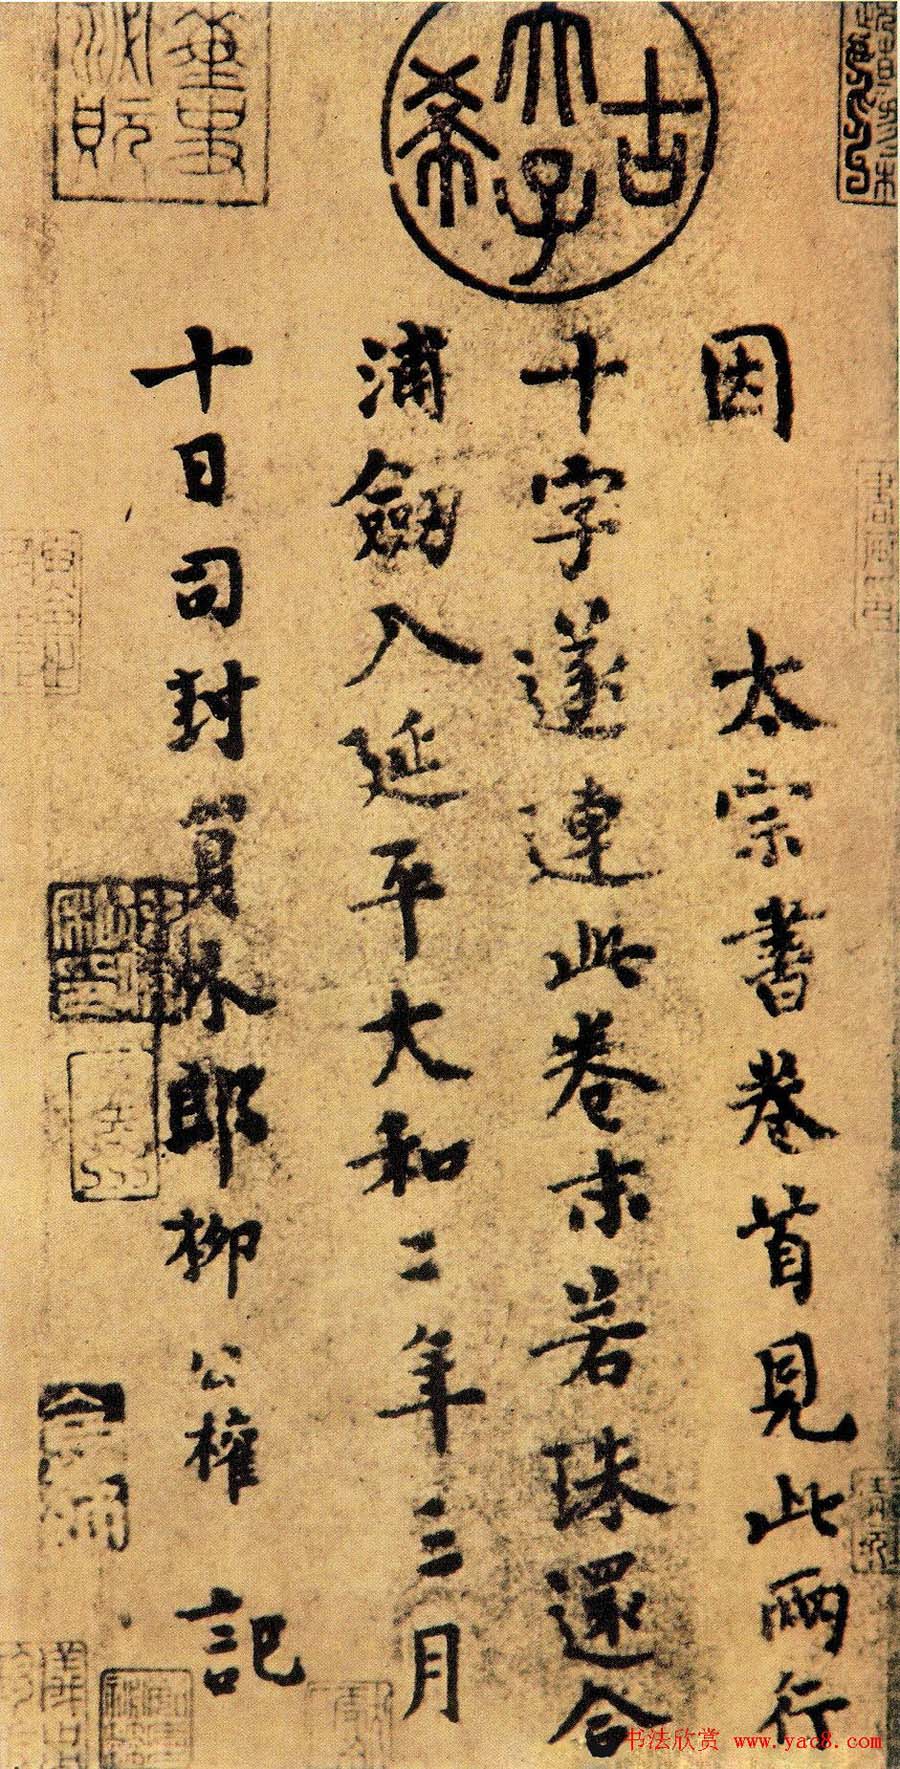 因　太宗書卷首見此兩行
十字遂連此卷末若珠還合
浦劒入延平大和二年三月
十日司封員外郎柳公權　記
古希天子
书法欣赏 www.yac8.com